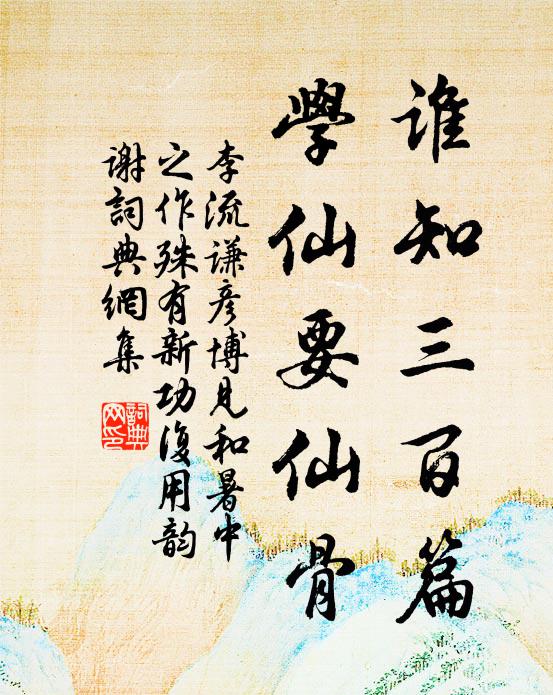 誰知三百篇
學仙要仙骨
李流謙彥博見和暑中
之作殊有新功復用韵
謝詞典網集
詞典网印